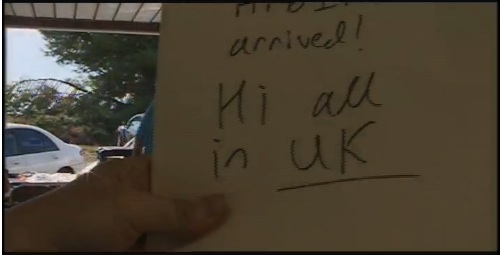 arrived!
Hi all
in UK